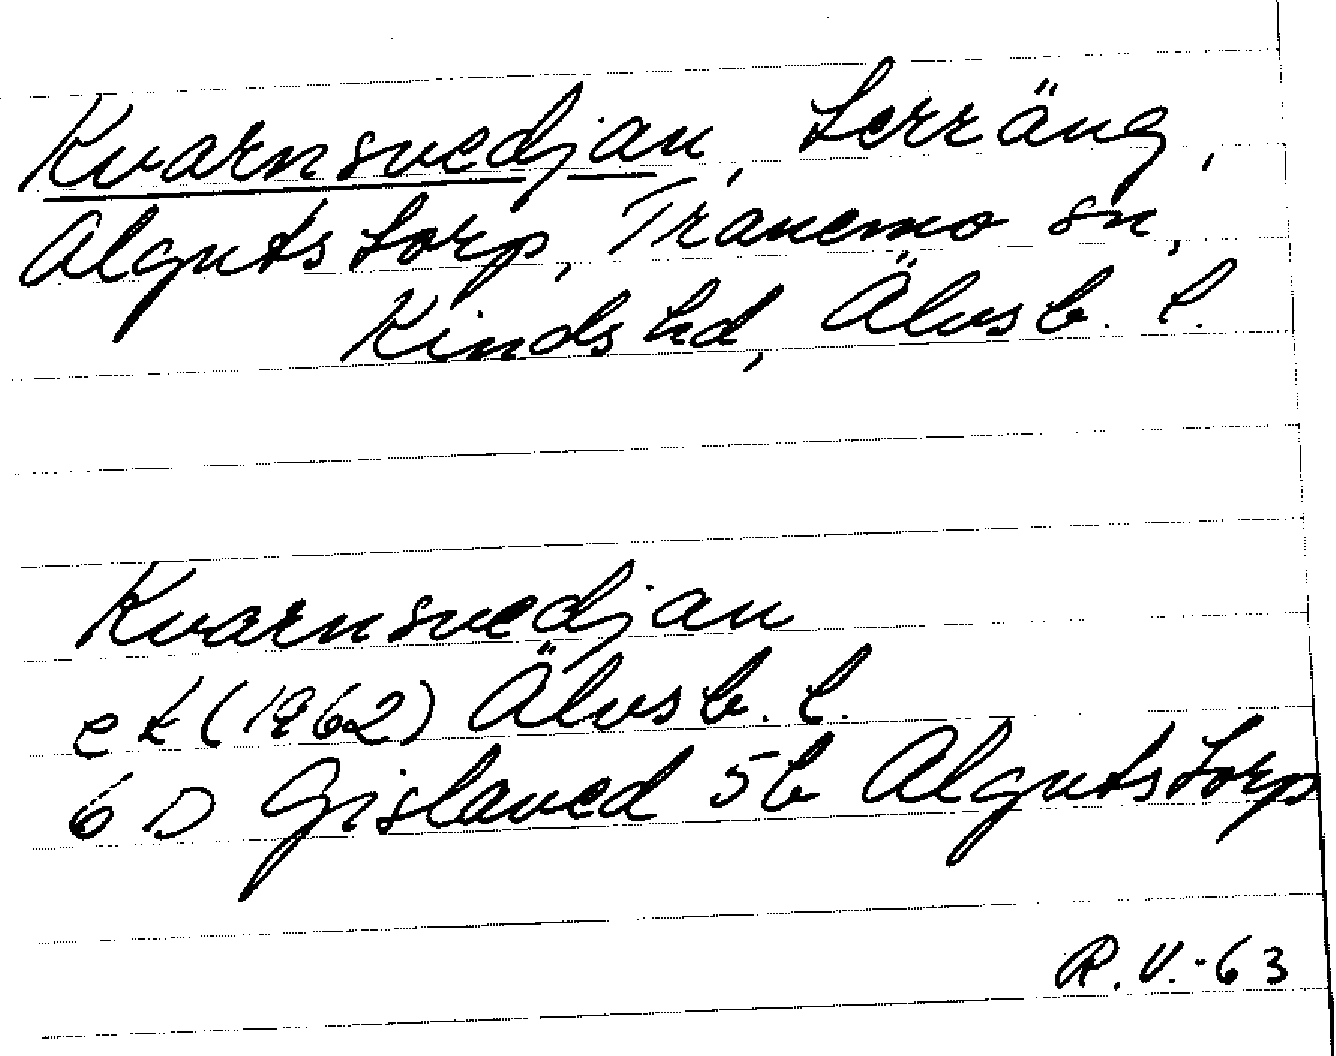 Kvarnsvedjan, terräng,
Algutstorp, Tranemo sn,
Kinds hd, Älvsb. l.
Kvarnsvedjan
ek (1962) Älvsb. l.
6 D Gislaved 5b Algutstorp
R.V.-63